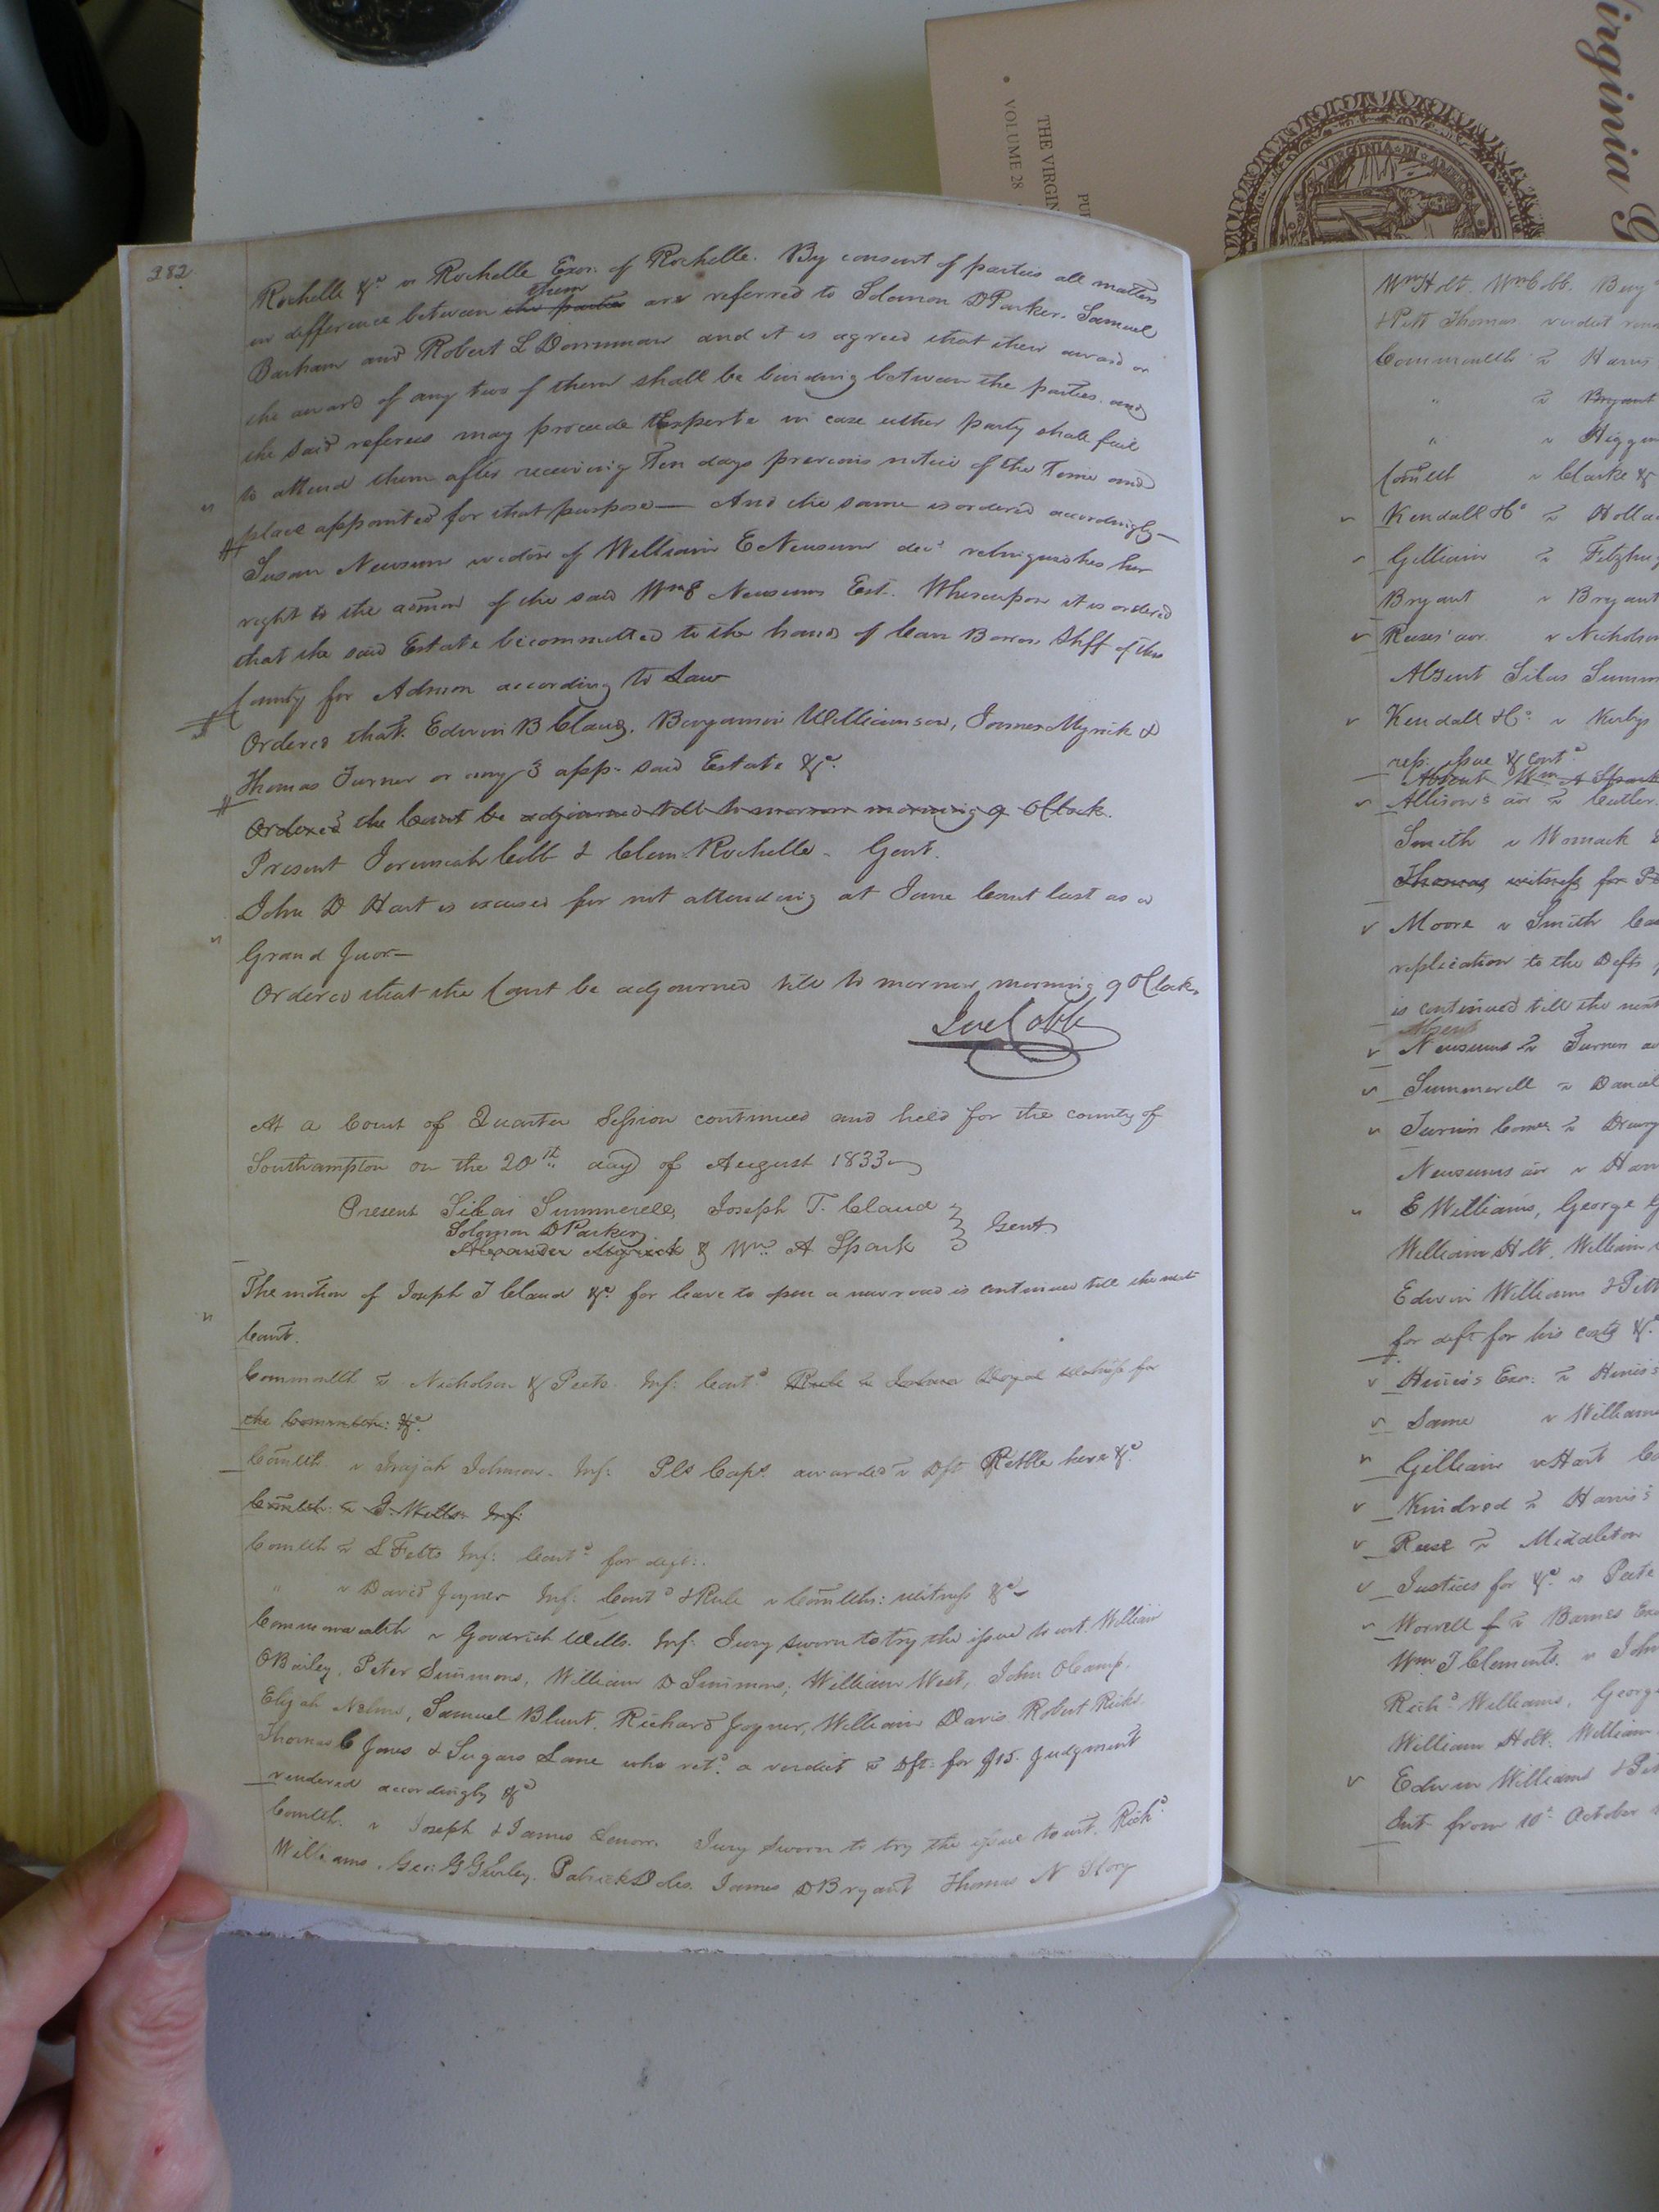 Virginia
THE VIRGIN
VOLUME 28
VIRGINIA IN
382
Rochelle &c. vs Rochelle Exor. of Rochelle. By consent of parties all matters
in difference between the parties them are referred to Solomon D Parker, Samuel
Barham and Robert L Dorman and it is agreed that their award or
the award of any two of them shall be binding between the parties, and
the said referees may proceede Exparte in case either party shall fail
to attend them after receiving Ten days previous notice of the Time and
place appointed for that purpose — And the same is ordered accordingly —
Susan Newsum widow of William E Newsum decd. relinquishes her
right to the admon of the said Wm E Newsums Est. Whereupon it is ordered
that the said Estate be committed to the hands of Shff of this
County for Admon according to Law
Ordered that Edwin B Claud, Benjamin Williamson, James Myrick &
Thomas Turner or any 3 app. said Estate &c.
Ordered the Court be adjourned till to morrow morning 9 OClock.
Present Jeremiah Cobb & Clem. Rochelle - Gent.
John D Hart is excused for not attending at June Court last as a
Grand Juor —
Ordered that the Court be adjourned till to morrow morning 9 OClock.
Jere Cobb
At a Court of Quarter Session continued and held for the county of
Southampton on the 20th day of August 1833
Present Silas Summerell, Joseph T. Claud
Solomon D Parker } Gent.
Alexander Myrick & Wm. A Spark
The motion of Joseph T Claud &c. for leave to open a new road is continued till the next
Court.
Commonlth vs Nicholson & Peets. Inf: Contd. Rule vs witness for
the Commlth: &c.
Comlth. vs Johnson. Inf: Pls Caps. awarded vs Dft Retble here &c.
Comlth: vs G. Wells. Inf:
Comlth vs L Felts Inf: Contd. for deft:.
" vs David Joyner Inf: Contd & Rule vs Comlths: witness &c
Commonwealth vs Goodrich Wells. Inf: Jury sworn to try the issue to wit. William
OBailey, Peter Simmons, William D Simmons, William West, John OCamp,
Elijah Nelms, Samuel Blunt, Richard Joyner, William Davis Robert Ricks
Thomas C Jones & Sugars Lane who retd. a verdict vs Dft: for $15. Judgment
rendered accordingly &c
Comlth. vs Joseph & James Jury sworn to try the issue to wit. Richd.
Williams, Geo: G Gurley, Patrick Doles, James D Bryant Thomas N Story
Wm Holt. Wm Cobb. Benj
& Pett Thomas verdict
Commonlth vs Harris
" vs Bryant
" vs
Comlth vs Clarke &
Kendall &c vs
Gilliam vs
Bryant vs Bryant
Reeses' avr. vs
Absent Silas
Kendall &c. vs
rep. issue & contd
Absent Wm A
Allison's avr vs Cutler
Smith vs Womack
Thomas witness for
Moore vs Smith
replication to the Defts
is continued till the next
Absent
Newsums vs Turner
Summerell vs Daniel
vs
Newsums avr vs
E Williams, George G
William Holt, William
Edwin Williams & Pett
for deft for his costs &c
vs
Same vs William
Gilliam vs Hart
Kindred vs Harris's
Reese vs Middleton
Justices for &c. vs Peete
Worrell vs Barnes
Wm J Clements. vs John
Richd Williams, George
William Holt. William
Edwin Williams & Pett
Int from 10th October